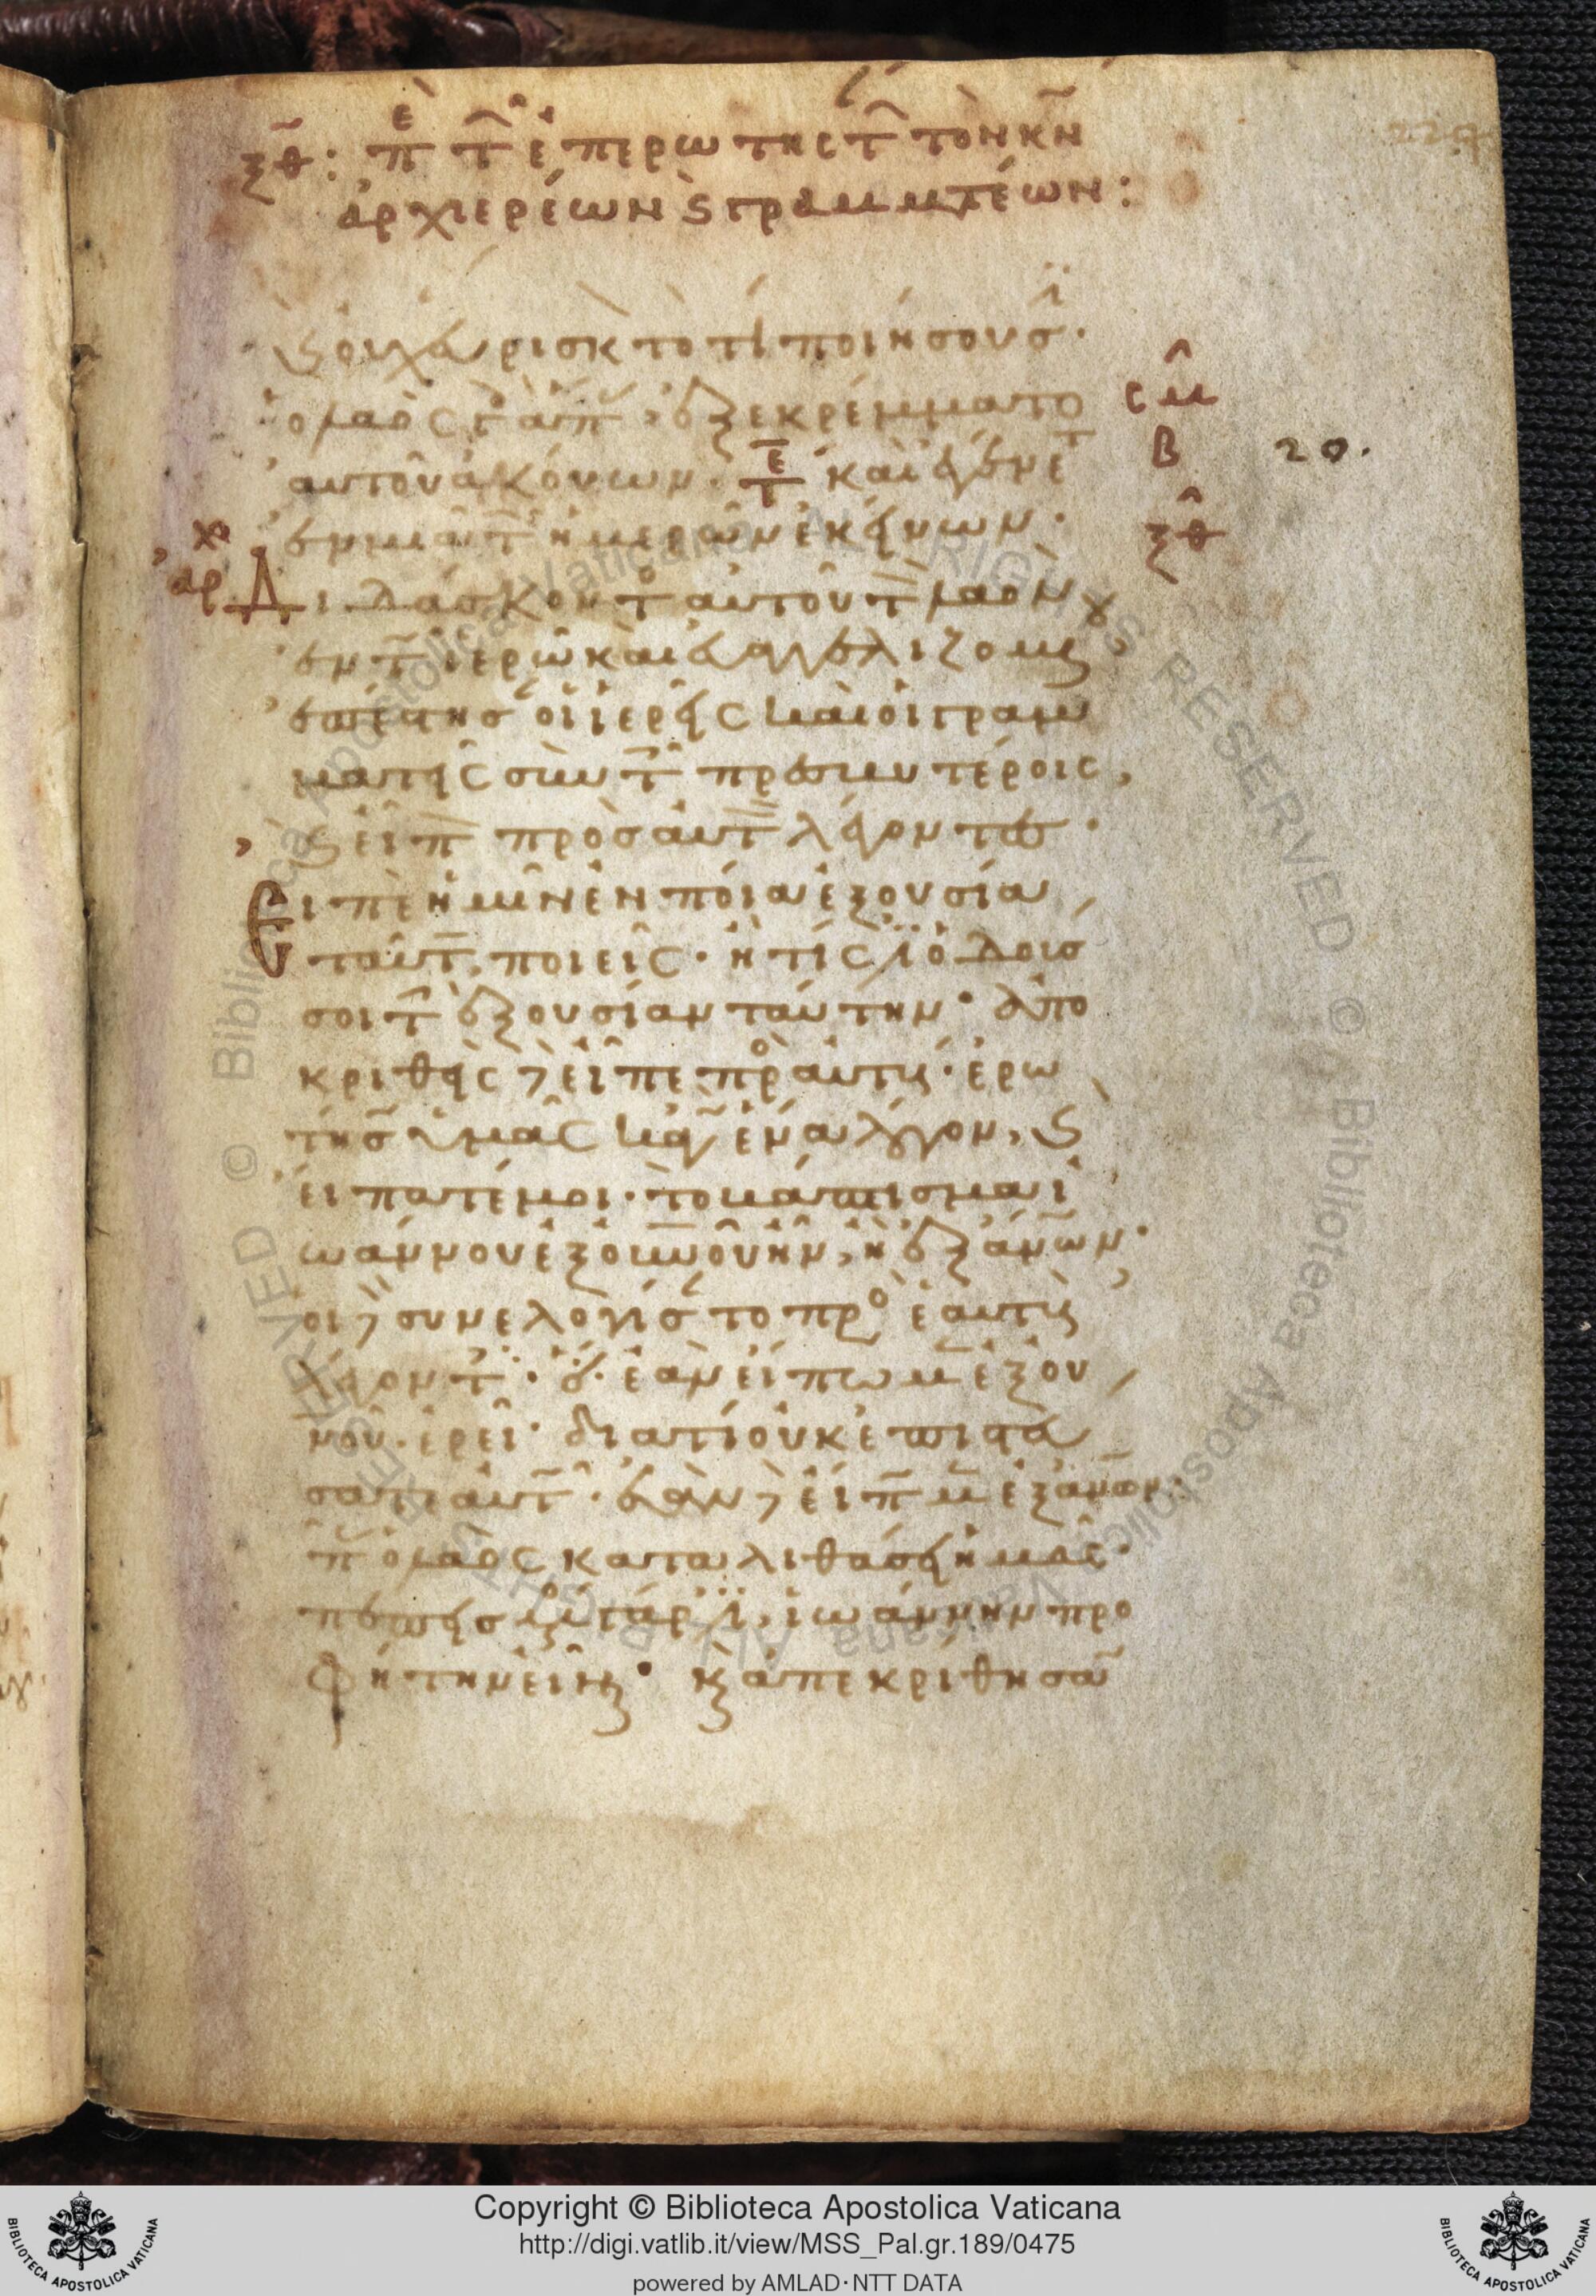 ξθ: π τ ἐπερωτησ τ τὸν κν
ἀρχιερέων ϛ γραμματέων:
ϛ οὐχ ἅυρισκ τὸ τί ποιήσουσ·
ὁ λαὸς γ ἁπ, ἐξεκρέμματο
αυτοῦ ἀκούων· τε και ἐγένετ
ἐν μιᾶ τ ἡμερῶν ἐκείνων·
Διδάσκοντ αὐτοῦ τ λαον
ἐν τ ἱερῶ και ἐυαγγελιζομ
ἐπέστησ οἱ ἱερεῖς και οἱ γραμ
ματεῖς σὺν τ πρεσβυτέροις,
ϛ εἶπ πρὸσ ἀυτ λέγοντεσ·
Ειπὲ ἡμῖν ἐν ποία ἐξουσία
ταῦτ, ποιεῖς· ἢ τίς ἐϊ ὁ δοὺσ
σοι τ ἐξουσίαν ταύτην· ἀπο
κριθεὶς δὲ εἶπε προ αυτους· ἐρω
τήσ ὑμᾶς κἀγ ἕνα λόγον, ϛ
εἴπατέ μοι· τὸ βάπτισμα ἰ
ωάννου ἐξ οὐνοῦ ἦν, ἢ ἐξ ἀνων·
οἱ δὲ συνελογίσ το προ ἑαυτους
λέγοντ· ὅ· ἐὰν εἴπωμ ἐξ ου
νοῦ· ἐρεῖ· διατί οὐκ ἐπιστεύ
σατε ἀυτ· ἐὰν δὲ εἴπ μ ἐξ ανων:
π ὁ λαὸς καταλιθάσει ἡμᾶς·
πέπεισμεν γάρ ἐϊ, ἰωάννην προ
φήτην εἶναι· και ἀπεκρίθησα
ϲμ
β
ξθ
20.
χ
αρ
Copyright © Biblioteca Apostolica Vaticana
http://digi.vatlib.it/view/MSS_Pal.gr.189/0475
powered by AMLAD·NTT DATA
BIBLIOTECA APOSTOLICA VATICANA
BIBLIOTECA APOSTOLICA VATICANA
© Biblioteca Apostolica Vaticana ALL RIGHTS RESERVED © Biblioteca Apostolica Vaticana ALL RIGHTS RESERVED